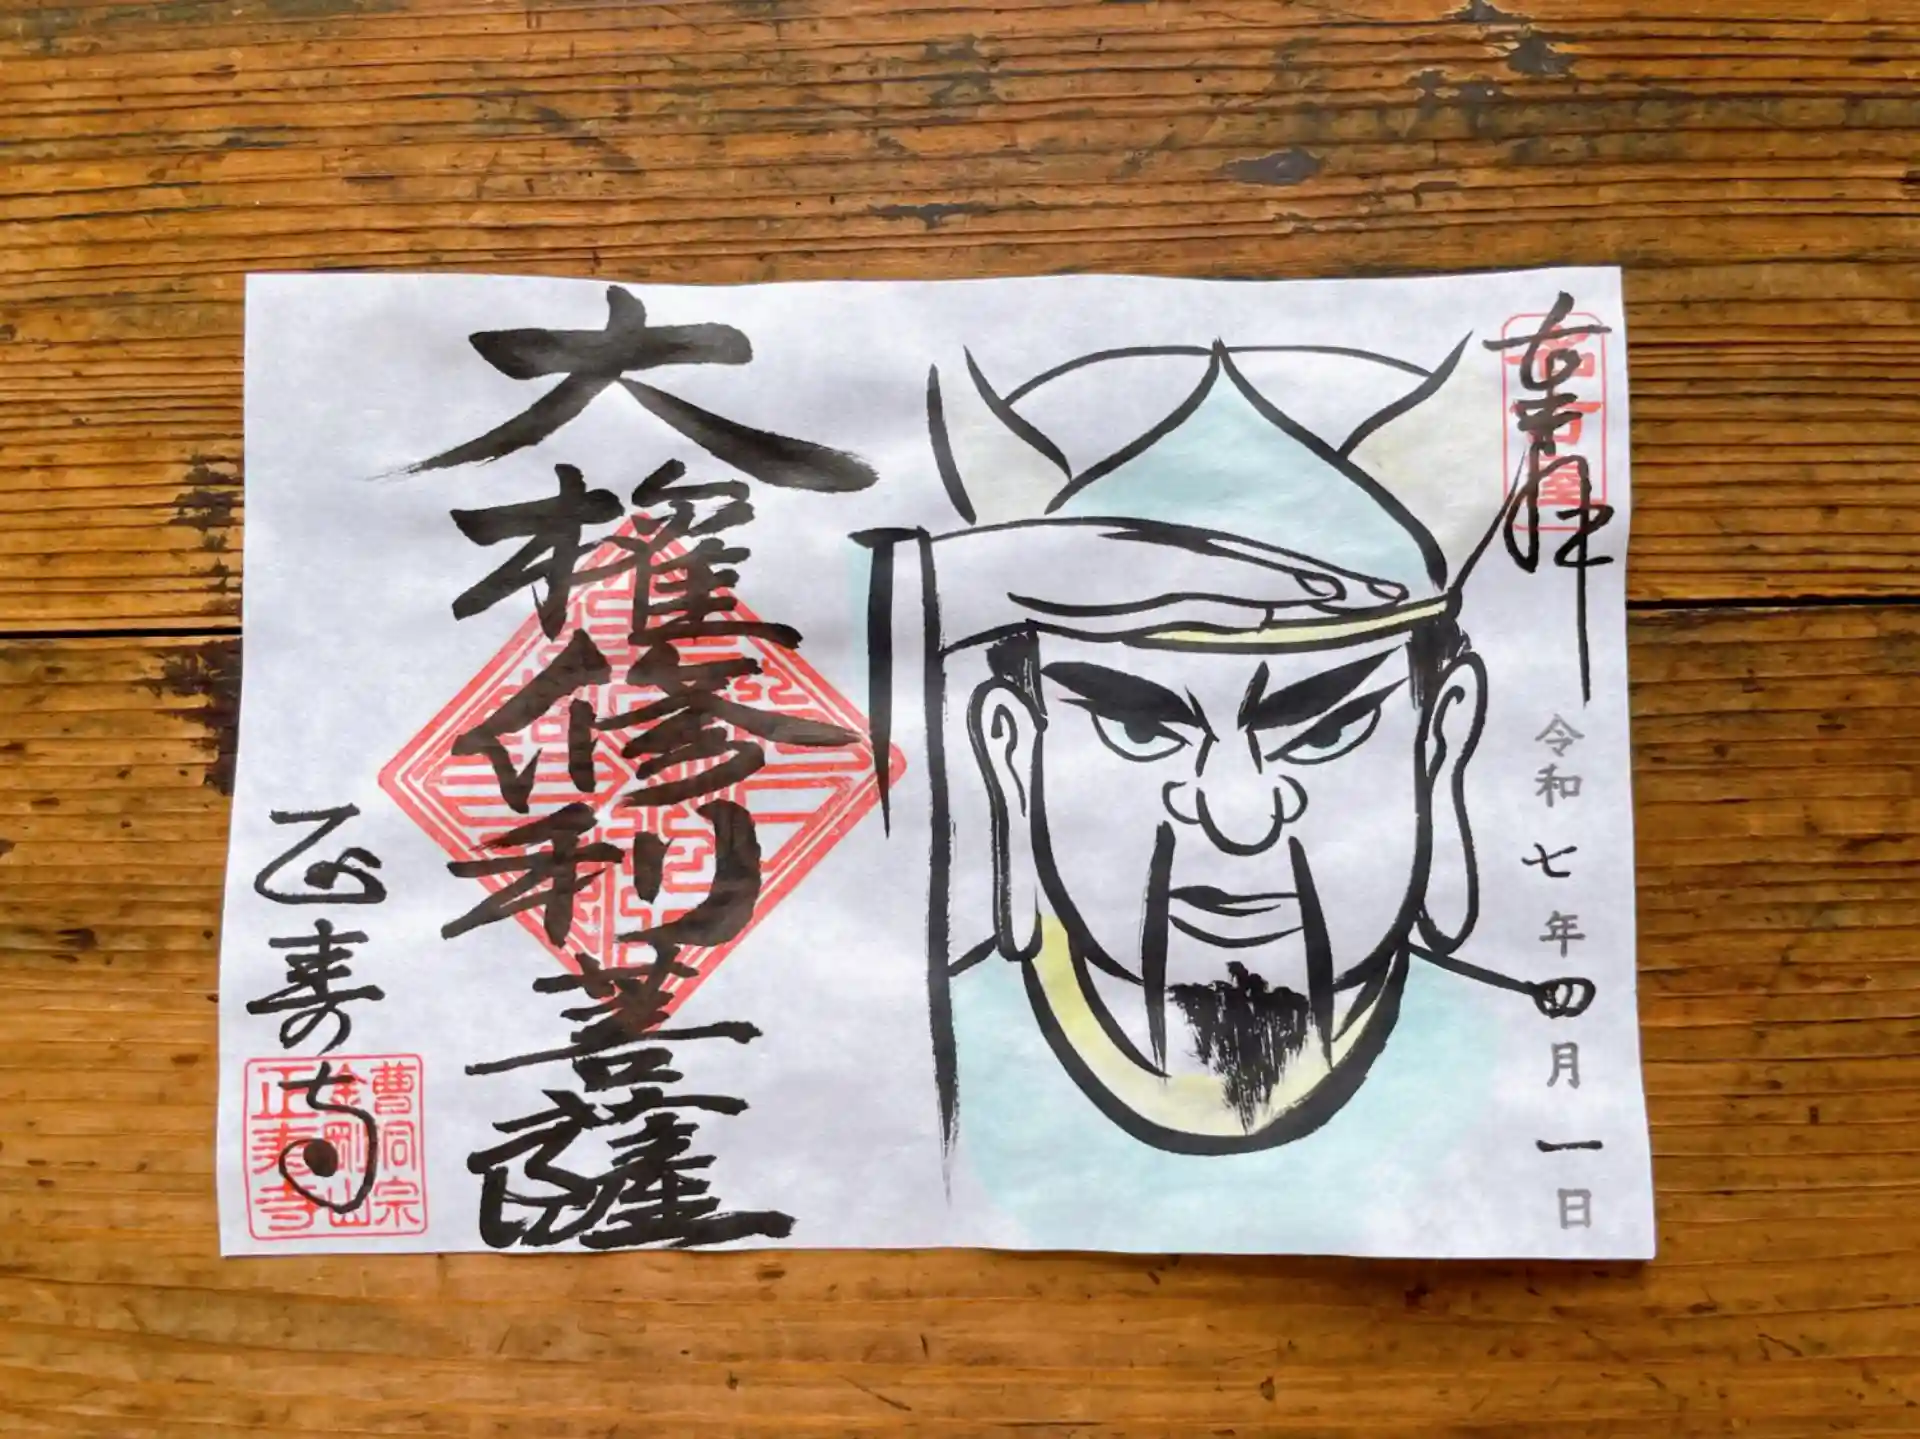 奉拝
令和七年四月一日
大権修利菩薩
正寿寺
曹洞宗
金剛山
正寿寺